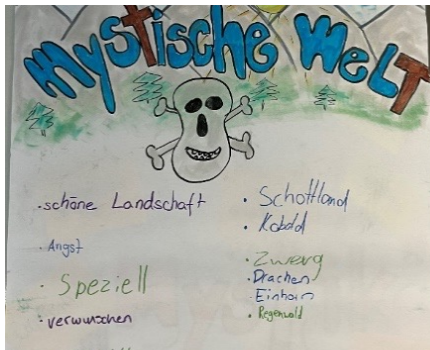 Mystische Welt
· schöne Landschaft
· Angst
· Speziell
· verwunschen
· Schottland
· Kobold
· Zwerg
· Drachen
· Einhorn
· Regenwald